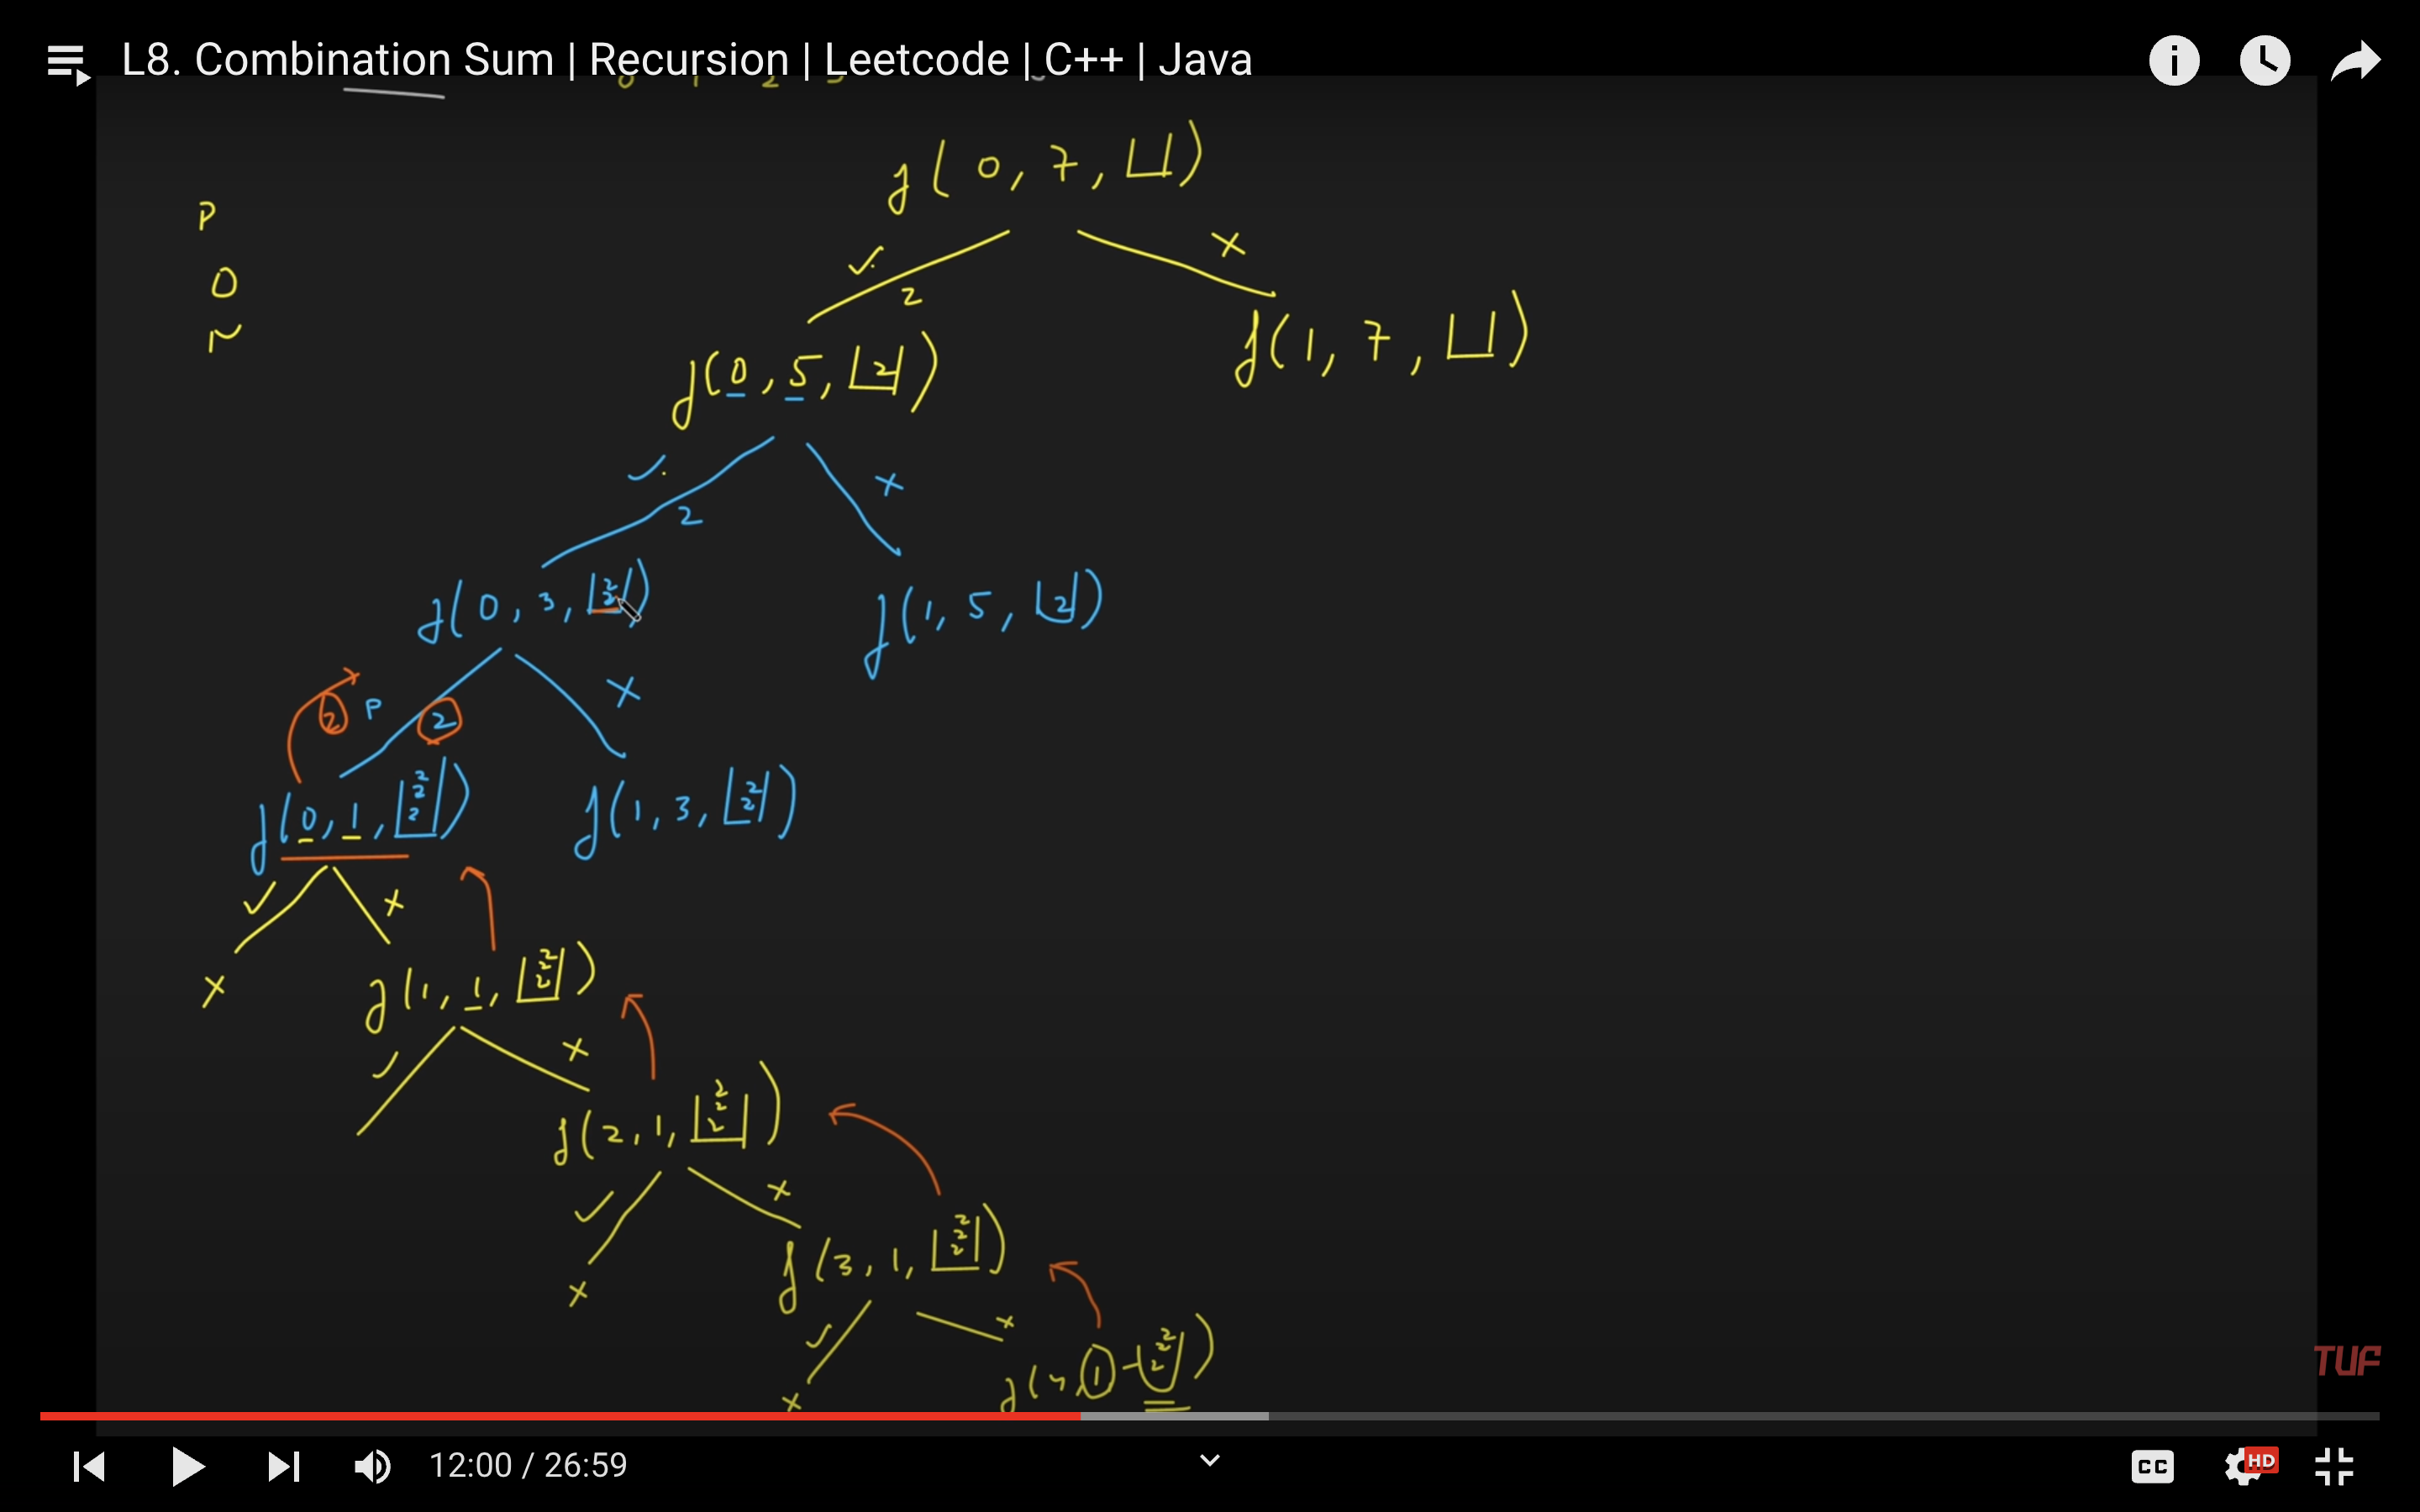 L8. Combination Sum | Recursion | Leetcode | C++ | Java
f(0, 7, [])
P
0
✓ 2 ×
f(0, 5, [2]) f(1, 7, [])
✓ 2 ×
f(0, 3, [2 2]) f(1, 5, [2])
2 P 2 ×
f(0, 1, [2 2 2]) f(1, 3, [2 2])
✓ ×
× f(1, 1, [2 2 2])
✓ ×
f(2, 1, [2 2 2])
✓ ×
× f(3, 1, [2 2 2])
✓ ×
×
TUF
12:00 / 26:59
CC HD